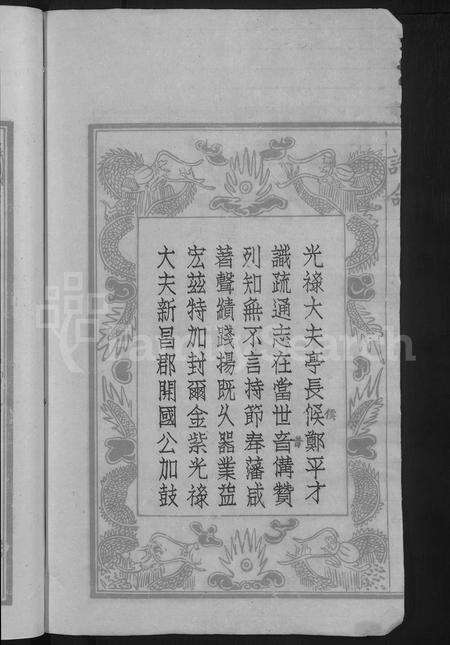 誥命
光祿大夫亭長候鄭平才
侯
識疏通志在當世音備贊
昔
列知無不言持節奉藩咸
著聲績踐揚既久器業益
宏茲特加封爾金紫光祿
大夫新昌郡開國公加鼓